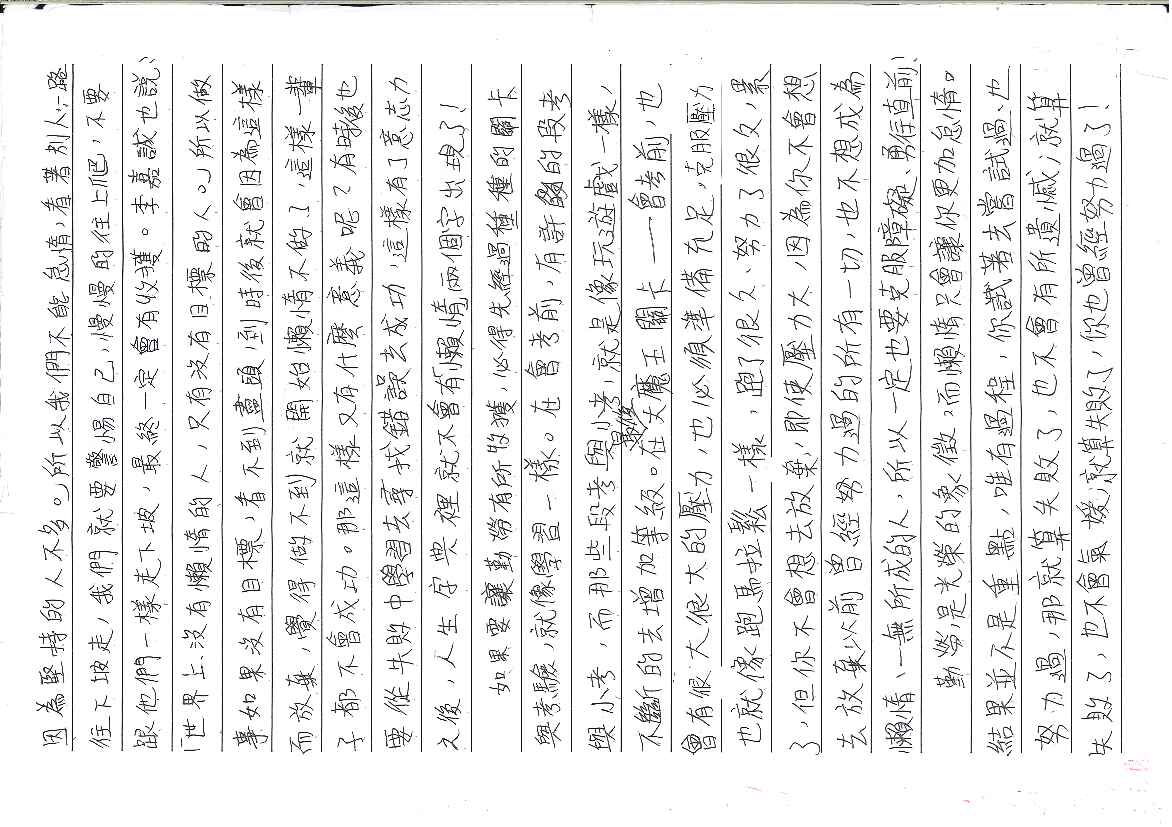 因為堅持的人不多。」所以我們不能怠惰，看著別人一路
往下坡走，我們就要警惕自己，慢慢的往上爬，不要
跟他們一樣走下坡，最終一定會有收獲。李嘉誠也說：
「世界上沒有懶惰的人，只有沒有目標的人。」所以做
事如果沒有目標，看不到盡頭，到時後就會因為這樣
而放棄，覺得做不到就開始懶惰不做了，這樣一輩
子都不會成功。那這樣又有什麼意義呢？有時後也
要從失敗中學習去尋找錯誤去成功，這樣有了意志力
之後，人生字典裡就不會有「懶惰」兩個字出現了！
如果要讓勤勞有所收獲，必得先經過種種的關卡
與考驗，就像學習一樣。在會考前，有許多的段考
與小考，而那些段考與小考，就是像玩遊戲一樣，
不斷的去增加等級。在最後大魔王關卡——會考前，也
會有很大很大的壓力，也必須準備充足，克服壓力
也就像跑馬拉鬆一樣，跑了很久、努力了很久，累
了，但你不會想去放棄，即使壓力大，因為你不會想
去放棄以前曾經努力過的所有一切，也不想成為
懶惰、一無所成的人，所以一定也要克服障礙、勇往直前！
勤勞是光榮的象徵，而懶惰只會讓你更加怠惰。
結果並不是重點，唯有過程，你試著去嘗試過、也
努力過，那就算失敗了，也不會有所遺憾；就算
失敗了，也不會氣餒，就算失敗了，你也曾經努力過了！